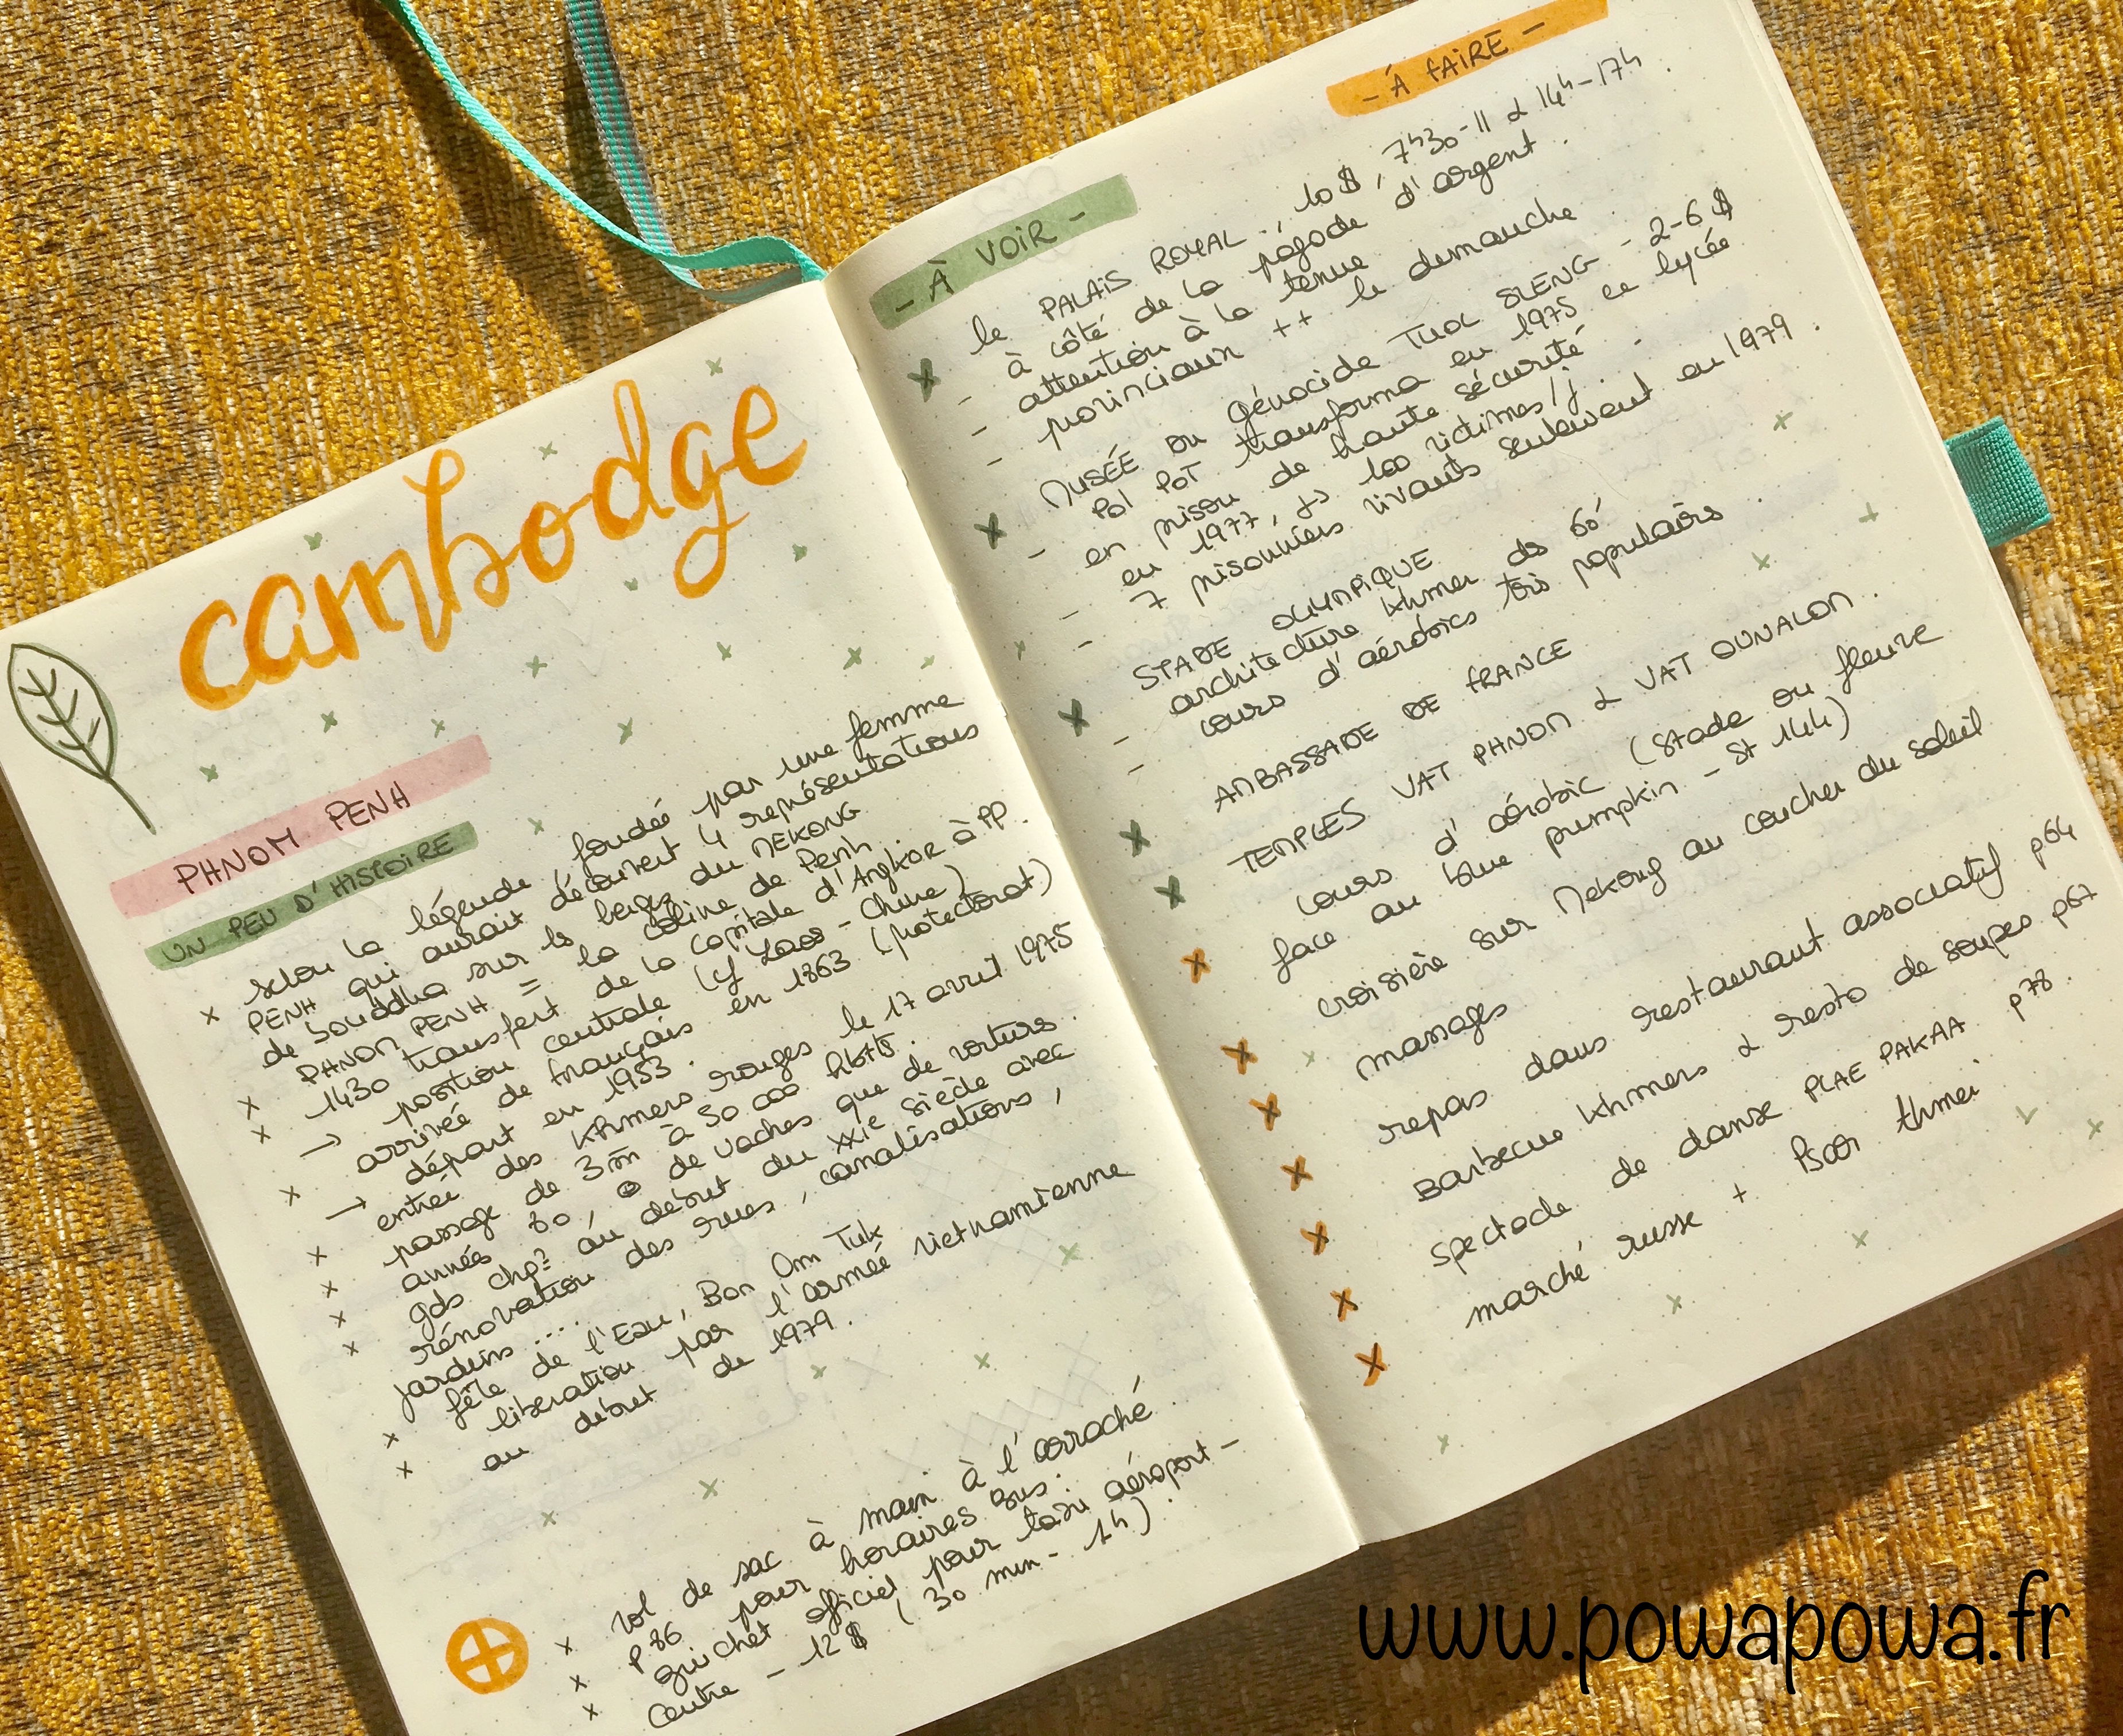 cambodge
PHNOM PENH
UN PEU D'HISTOIRE
x selon la légende, fondée par une femme
PENH qui aurait découvert 4 représentations
de bouddha sur les berges du MEKONG
PHNOM PENH = la colline de Penh.
x 1430 transfert de la capitale d'Angkor à PP.
x → position centrale (cf Laos - Chine)
arrivée de français en 1863 (protectorat)
x → départ en 1953.
entrée des Khmers rouges le 17 avril 1975
x passage de 3m à 50 000 hbts.
x années 80, de vaches que de voitures.
x gds chgt au début du XXIe siècle avec
x rénovation des rues, canalisations,
jardins....
x fête de l'Eau, Bon Om Tuk
x libération par l'armée vietnamienne
au début de 1979.
x vol de sac à main à l'arraché.
x p 86 pour horaires bus.
x guichet officiel pour taxi aéroport -
centre - 12 $ (30 min - 1h).
- À VOIR -
x le PALAIS ROYAL, 10 $, 7h30-11 & 14h-17h.
- à côté de la pagode d'argent.
- attention à la tenue
- provinciaux ++ le dimanche.
x MUSÉE DU génocide TUOL SLENG - 2-6 $
- Pol POT transforma en 1975 ce lycée
en prison de haute sécurité.
- en 1977, 100 victimes/j.
- 7 prisonniers vivants seulement en 1979.
x STADE OLYMPIQUE
- architecture khmer des 60'
- cours d'aérobics très populaires.
x AMBASSADE DE FRANCE
x TEMPLES VAT PHNOM & VAT OUNALOM.
- À FAIRE -
x cours d'aérobic (stade ou fleuve
face au blue pumpkin - st 144)
x croisière sur Mekong au coucher du soleil
x massages
x repas dans restaurant associatif p64
x Barbecue khmers & resto de soupes p67
x spectacle de danse PLAE PAKAA p78.
x marché russe + Psar thmei
www.powapowa.fr